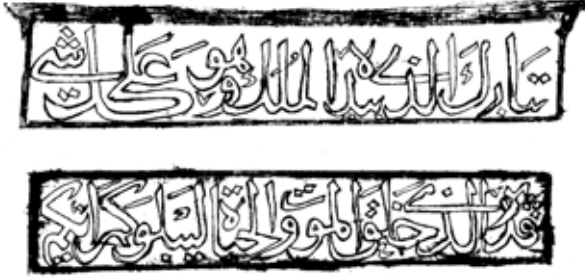 تبارك الذي بيده الملك وهو على كل شيء
قدير الذي خلق الموت والحياة ليبلوكم أيكم